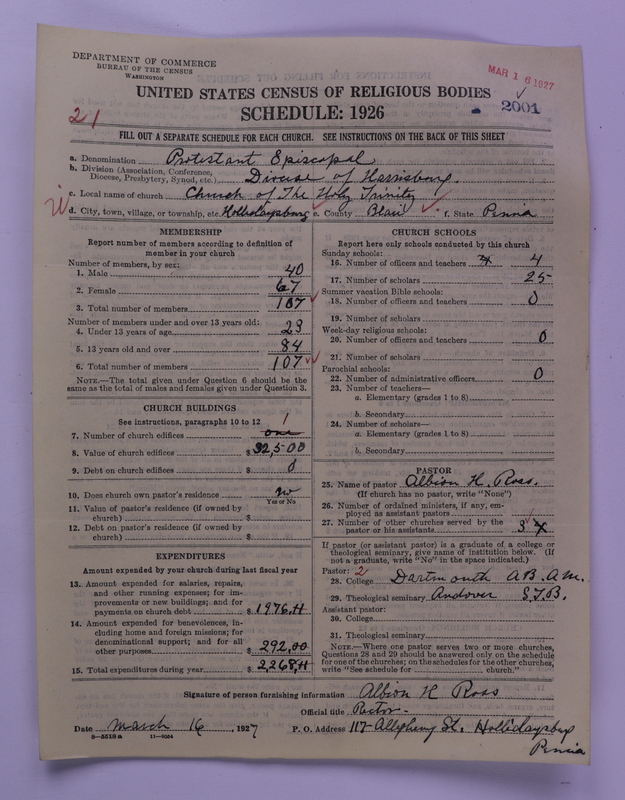 DEPARTMENT OF COMMERCE
BUREAU OF THE CENSUS
WASHINGTON
MAR 16 1927
UNITED STATES CENSUS OF RELIGIOUS BODIES
SCHEDULE: 1926
2001
21
FILL OUT A SEPARATE SCHEDULE FOR EACH CHURCH. SEE INSTRUCTIONS ON THE BACK OF THIS SHEET
a. Denomination Protestant Episcopal
b. Division (Association, Conference, Diocese, Presbytery, Synod, etc.) Diocese of Harrisburg.
c. Local name of church Church of The Holy Trinity
d. City, town, village, or township, etc. Hollidaysburg e. County Blair f. State Penna
MEMBERSHIP
Report number of members according to definition of
member in your church
Number of members, by sex:
1. Male 40
2. Female 67
3. Total number of members 107
Number of members under and over 13 years old:
4. Under 13 years of age 23
5. 13 years old and over 84
6. Total number of members 107
NOTE.—The total given under Question 6 should be the
same as the total of males and females given under Question 3.
CHURCH BUILDINGS
See instructions, paragraphs 10 to 12
7. Number of church edifices one 1
8. Value of church edifices $ 32,500
9. Debt on church edifices $ 0
10. Does church own pastor's residence no
Yes or No
11. Value of pastor's residence (if owned by
church) $
12. Debt on pastor's residence (if owned by
church) $
EXPENDITURES
Amount expended by your church during last fiscal year
13. Amount expended for salaries, repairs,
and other running expenses; for im-
provements or new buildings; and for
payments on church debt $ 1976,11
14. Amount expended for benevolences, in-
cluding home and foreign missions; for
denominational support; and for all
other purposes $ 292,00
15. Total expenditures during year $ 2,268,11
CHURCH SCHOOLS
Report here only schools conducted by this church
Sunday schools:
16. Number of officers and teachers 4
17. Number of scholars 25
Summer vacation Bible schools:
18. Number of officers and teachers 0
19. Number of scholars
Week-day religious schools:
20. Number of officers and teachers 0
21. Number of scholars
Parochial schools:
22. Number of administrative officers 0
23. Number of teachers—
a. Elementary (grades 1 to 8)
b. Secondary
24. Number of scholars—
a. Elementary (grades 1 to 8)
b. Secondary
PASTOR
25. Name of pastor Albion H. Ross.
(If church has no pastor, write "None")
26. Number of ordained ministers, if any, em-
ployed as assistant pastors
27. Number of other churches served by the
pastor or his assistants 3
If pastor (or assistant pastor) is a graduate of a college or
theological seminary, give name of institution below. (If
not a graduate, write "No" in the space indicated.)
Pastor: 2
28. College Dartmouth A.B. A.M.
29. Theological seminary Andover S.T.B.
Assistant pastor:
30. College
31. Theological seminary
NOTE.—Where one pastor serves two or more churches,
Questions 28 and 29 should be answered only on the schedule
for one of the churches; on the schedules for the other churches,
write "See schedule for church."
Signature of person furnishing information Albion H Ross
Official title Rector
Date March 16, 1927 P. O. Address 117 Allegheny St. Hollidaysburg
Penna
8—5518a 11—9054